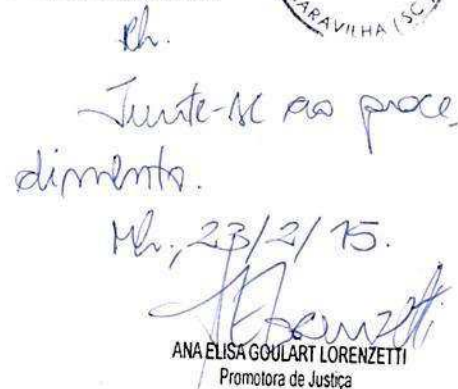 ARAVILHA (SC
Rh.
Junte-se ao proce-
dimento.
Mh., 23/2/15.
ANA ELISA GOULART LORENZETTI
Promotora de Justiça